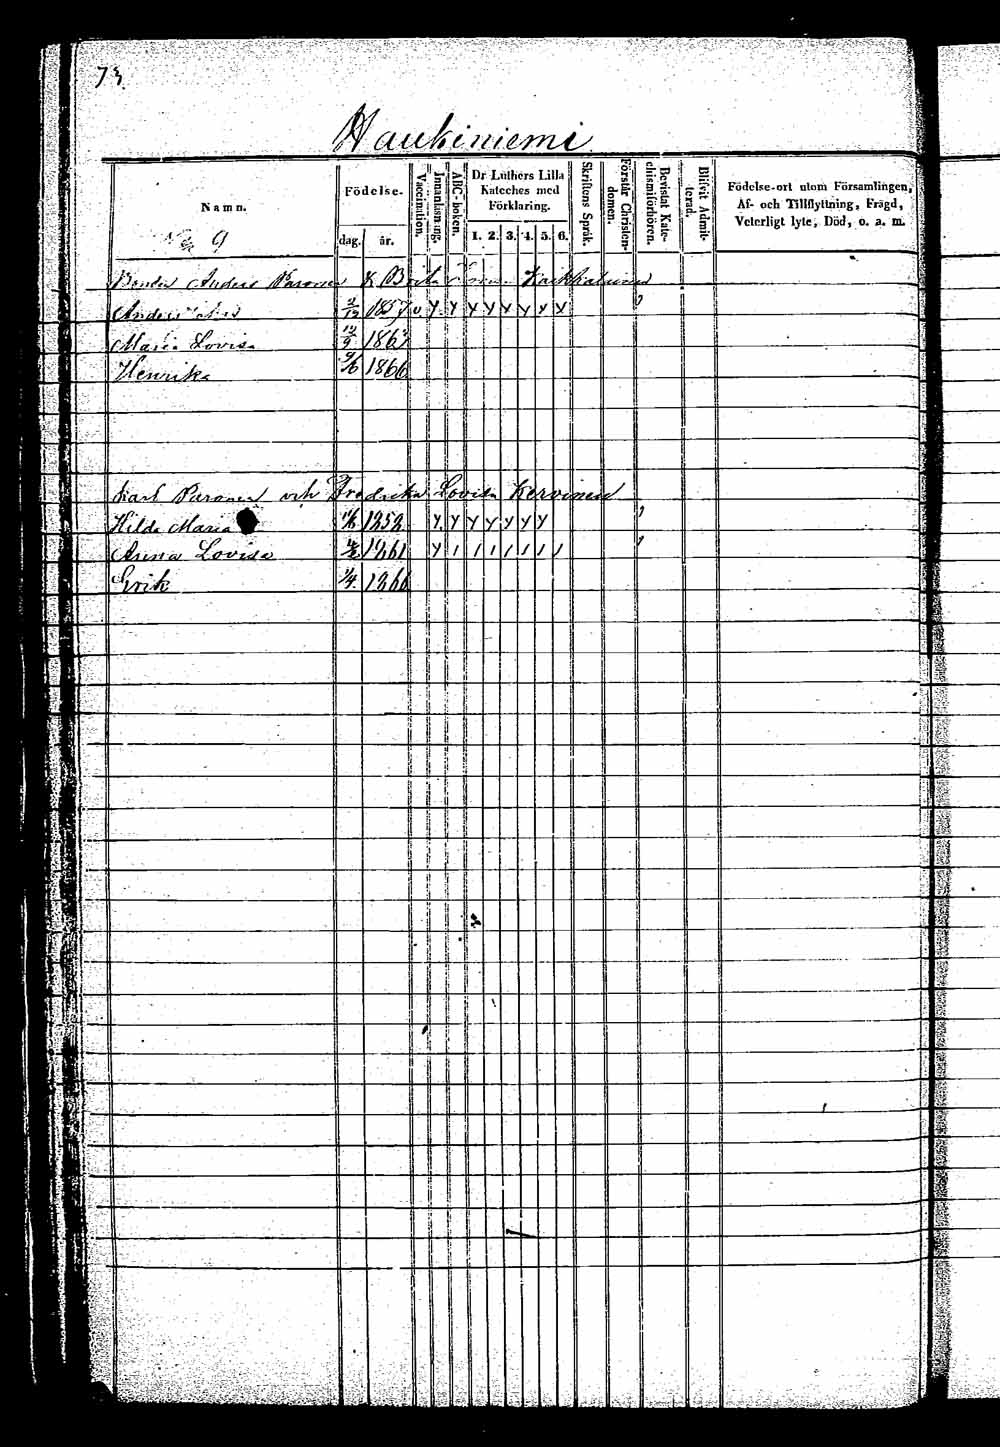 73.
Haukiniemi
Namn. Födelse- dag. år. Vaccination. Innanläsning. ABC-boken. Dr Luthers Lilla Kateches med Förklaring. 1. 2. 3. 4. 5. 6. Skriftens Språk. Förstår Christendomen. Bevistat Katechismiförhören. Blifvit Admitterad. Födelse-ort utom Församlingen, Af- och Tillflyttning, Frägd, Veterligt lyte, Död, o. a. m.
9
Bonden Anders Paronen & Brita
Anders 2/12 1857 v y y y y y y y x
Maria Lovisa 1863
Henrika 9/6 1866
Karl Paronen och Fredrika Lovisa Kervinen
Hilda Maria 1858 y y y y y y y
Anna Lovisa 1861 y 1 1 1 1 1 1 1
Erik 1/4 1866